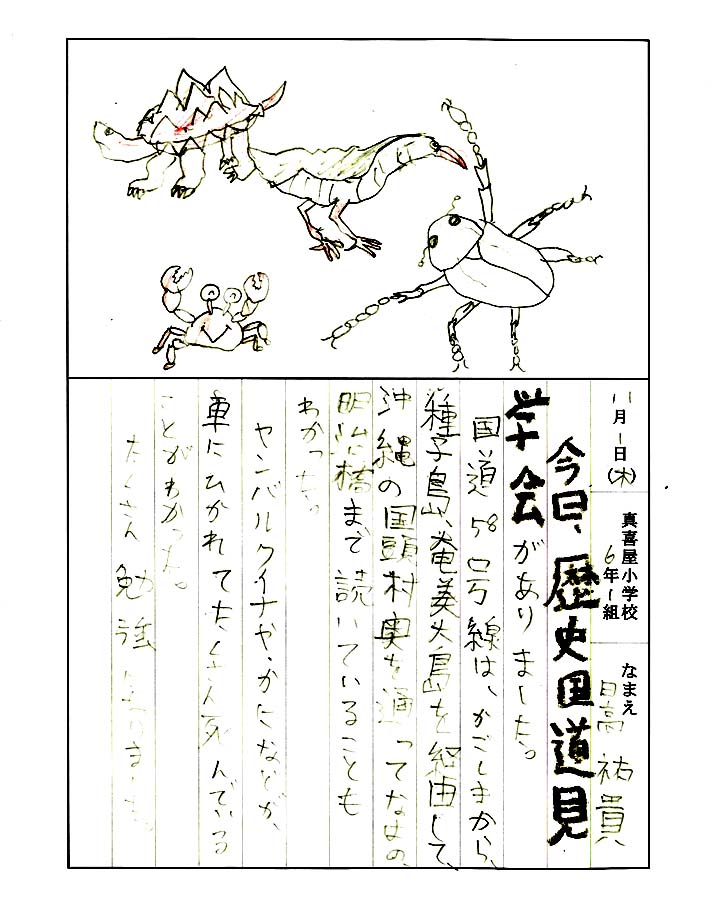 八月一日(木)
真喜屋小学校
6年1組
なまえ
日高祐貴
今日、歴史国道見
学会がありました。
国道58号線は、かごしまから、
種子島、奄美大島を経由して、
沖縄の国頭村奥を通ってなはの、
明治橋まで読いていることも
わかった。
ヤンバルクイナや、かになどが、
車にひかれてたくさん死んでいる
ことがわかった。
たくさん勉強になりました。